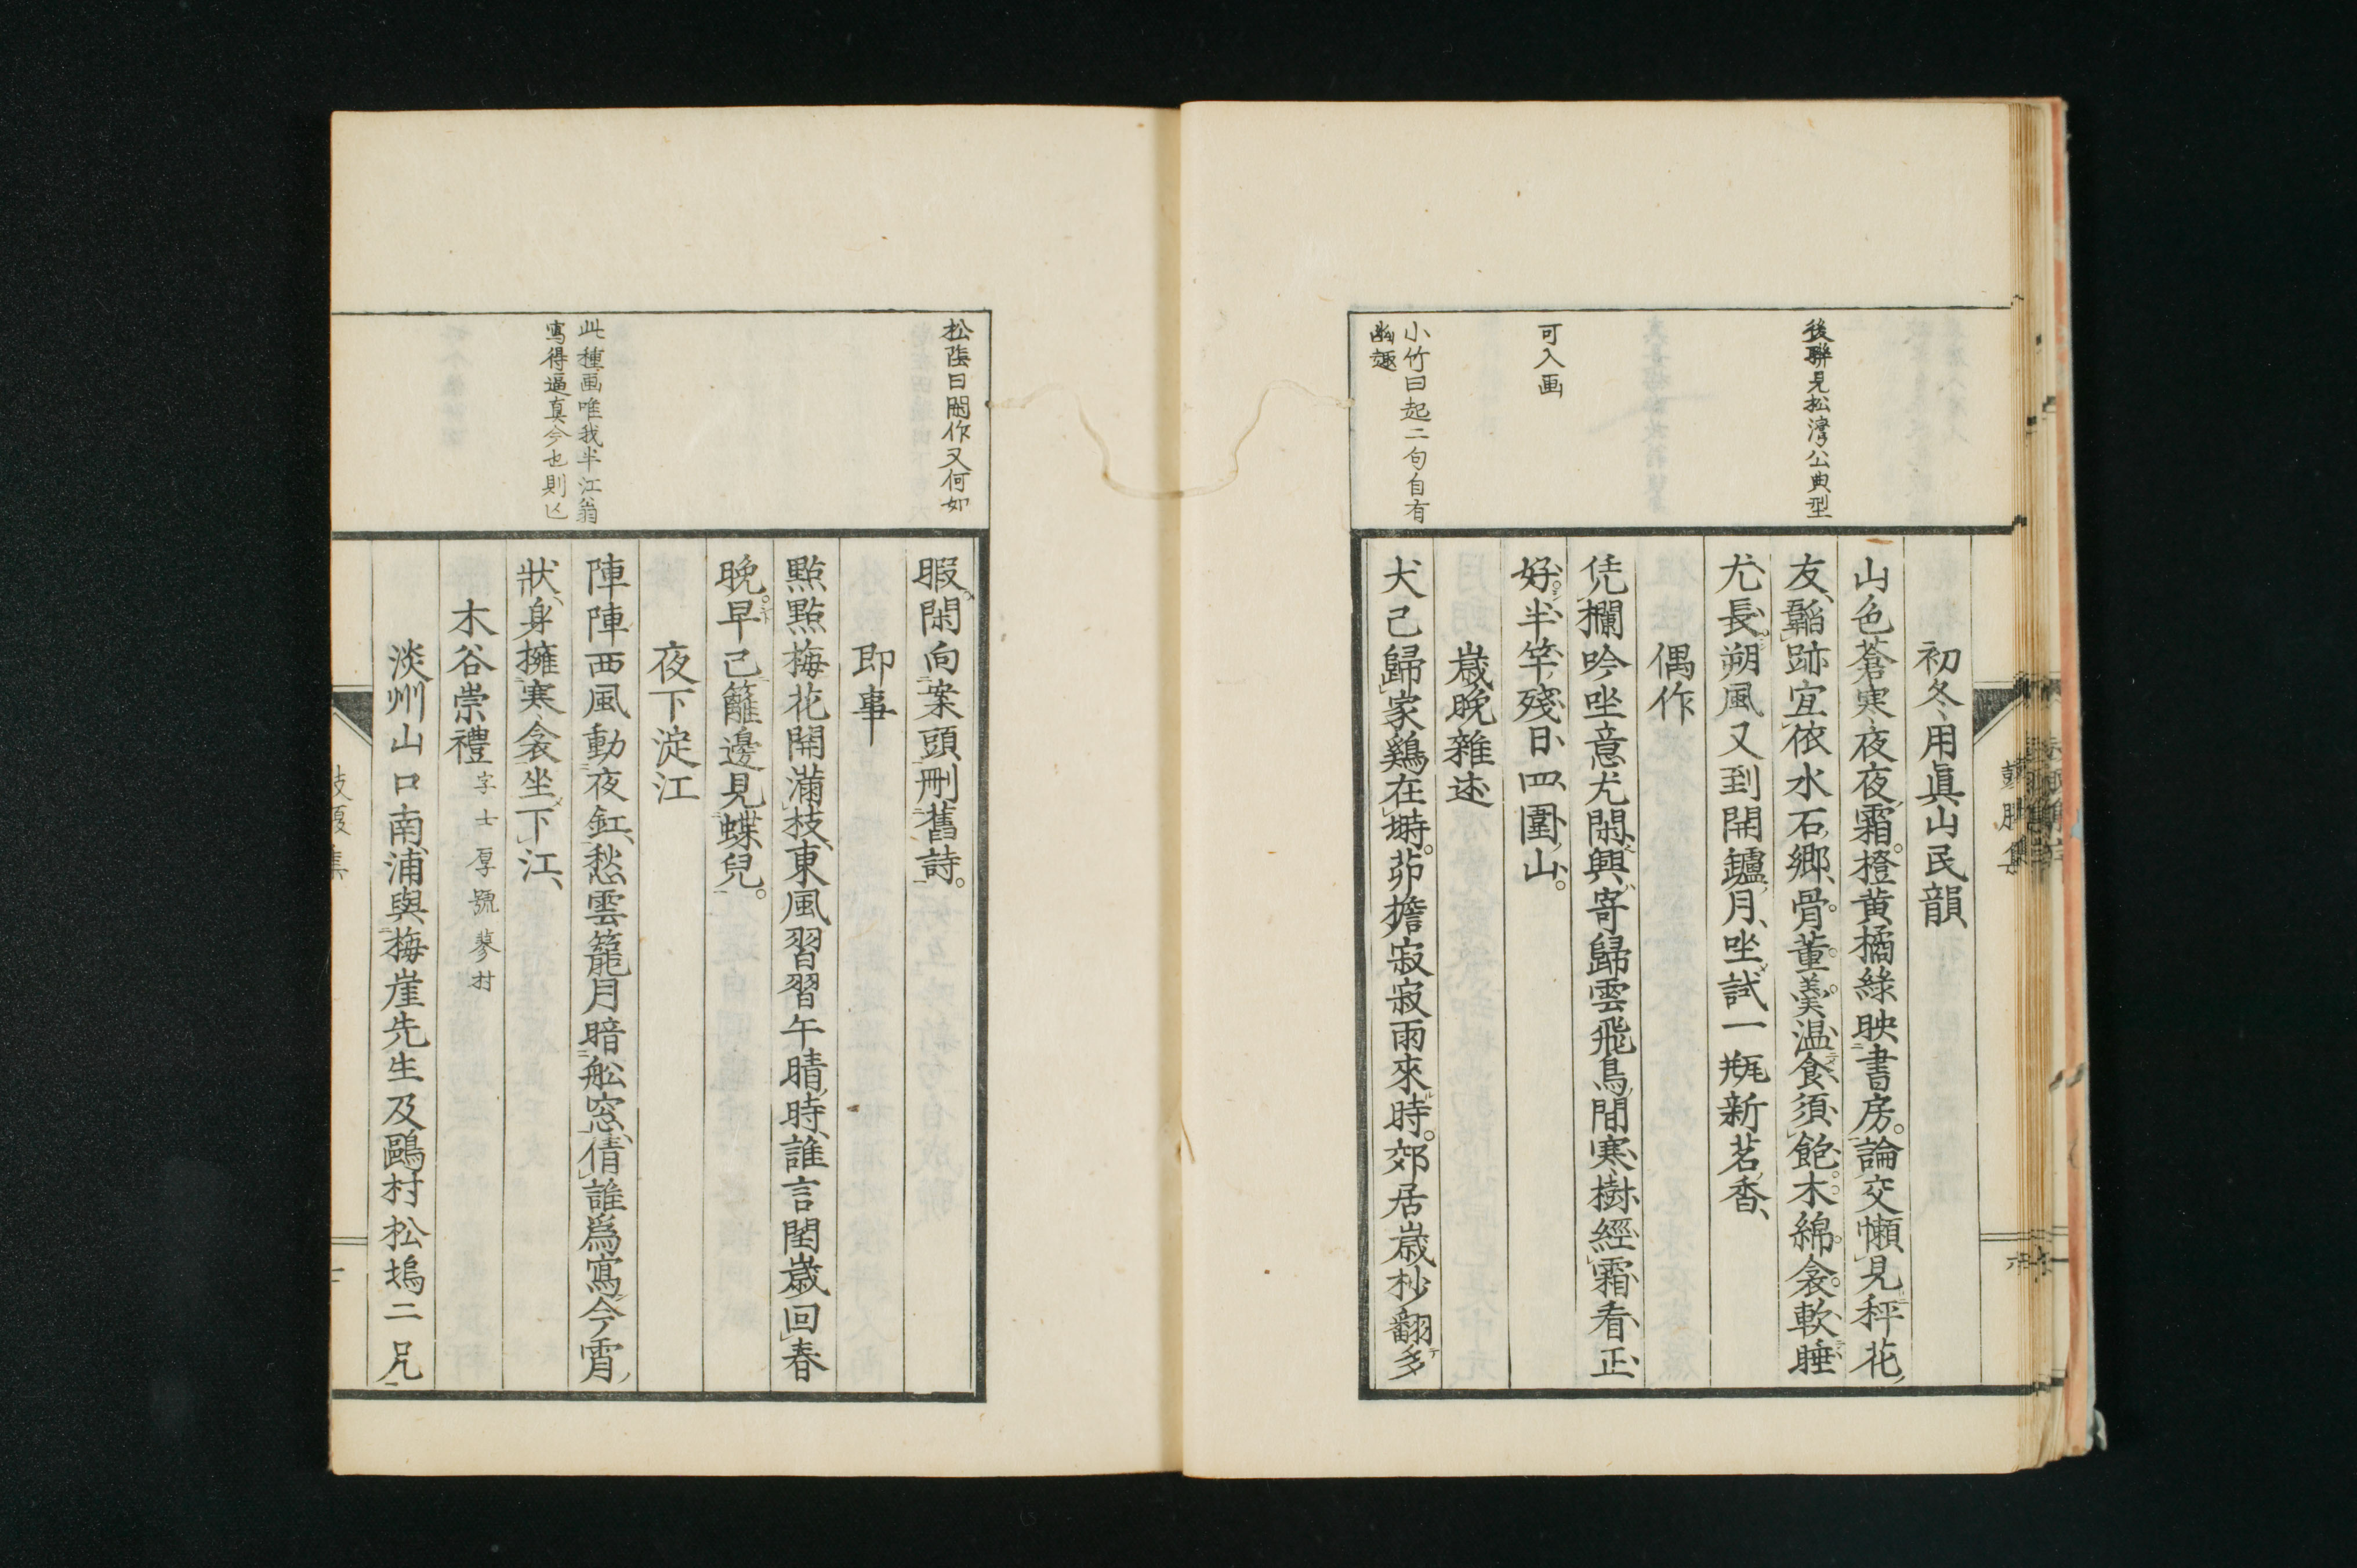 後聯見松濤公典型
可入画
小竹曰起二句自有
幽趣
初冬用眞山民韻
山色蒼寒夜夜霜橙黄橘綠映書房論交懶見秤花
友韜跡宜依水石鄉骨董羹温食須飽木綿衾軟睡
尤長朔風又到開鑪月坐試一瓶新茗香
偶作
凭欄吟坐意尤閑興寄歸雲飛鳥間寒樹經霜看正
好半竿殘日四圍山
歲晚雜述
犬已歸家鷄在塒茆擔寂寂雨來時郊居歲杪翻多
松蔭曰閏作又何如
此種画唯我半江翁
寫得逼真今也則亾
暇閑向案頭刪舊詩
即事
點點梅花開滿枝東風習習午晴時誰言閏歲回春
晚早已籬邊見蝶兒
夜下淀江
陣陣西風動夜釭愁雲籠月暗舩窓倩誰爲寫今宵
狀身擁寒衾坐下江
木谷崇禮字士厚號蓼村
淡州山口南浦與梅崖先生及鷗村松塢二兄